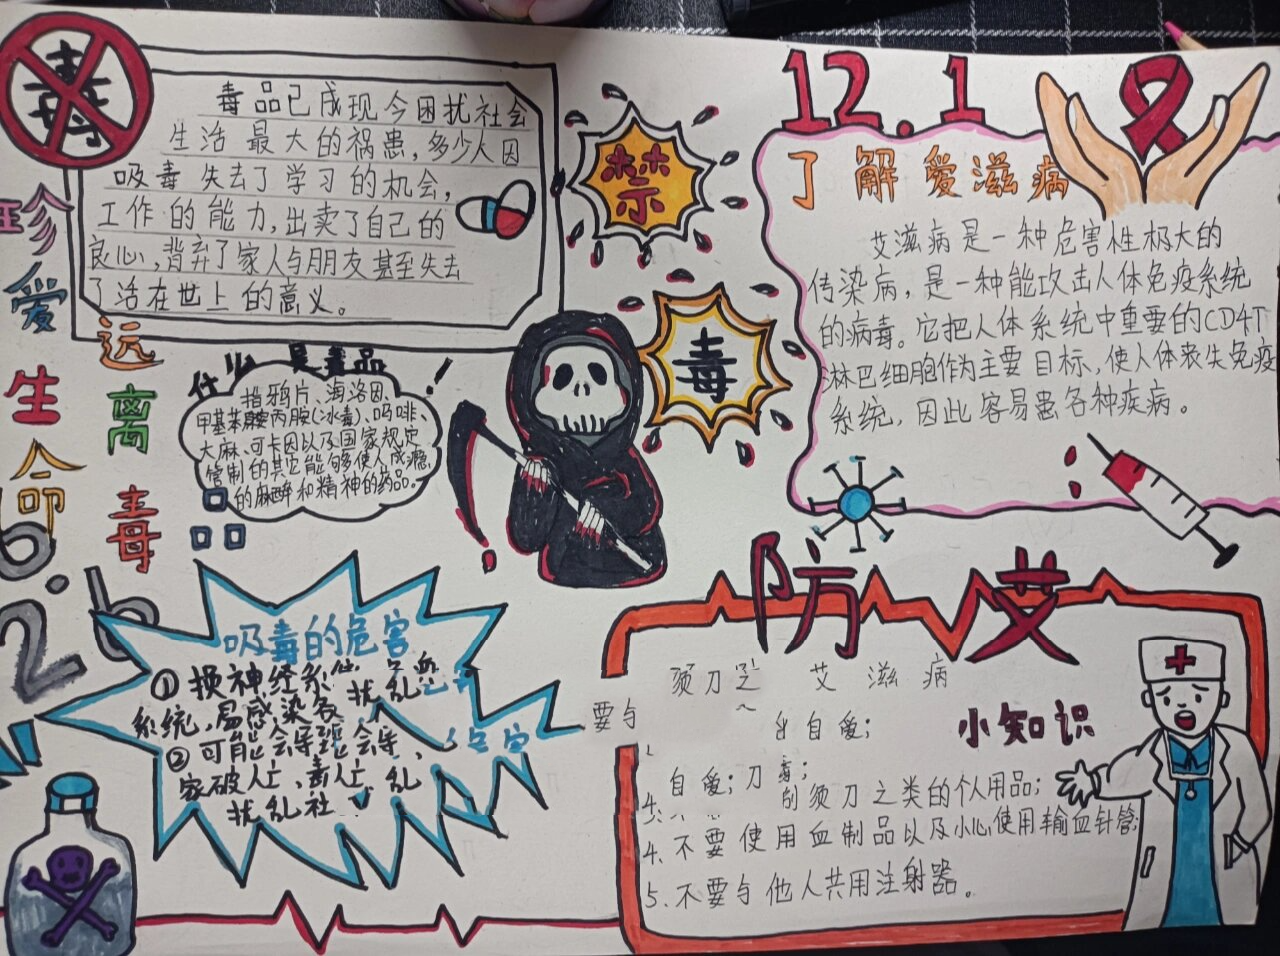 毒
毒品已成现今困扰社会
生活最大的祸患,多少人因
吸毒失去了学习的机会,
工作的能力,出卖了自己的
良心,背弃了家人与朋友甚至失去
了活在世上的意义。
珍爱生命
远离毒品
6.26
什么是毒品
指鸦片、海洛因、
甲基苯丙胺(冰毒)、吗啡、
大麻、可卡因以及国家规定
管制的其它能够使人成瘾
的麻醉和精神的药品。
禁
毒
12.1
了解爱滋病
艾滋病是一种危害性极大的
传染病,是一种能攻击人体免疫系统
的病毒。它把人体系统中重要的CD4T
淋巴细胞作为主要目标,使人体丧失免疫
系统,因此容易患各种疾病。
吸毒的危害
① 损神经系
扰乱
系统,易感染
② 可能会导
家破人亡,毒人亡,乱
扰乱社
防艾
小知识
须刀
艾滋病
要与
自爱;
自爱;刀毒;
4.
刮须刀之类的个人用品;
4.不要使用血制品以及小心使用输血针管;
5.不要与他人共用注射器。